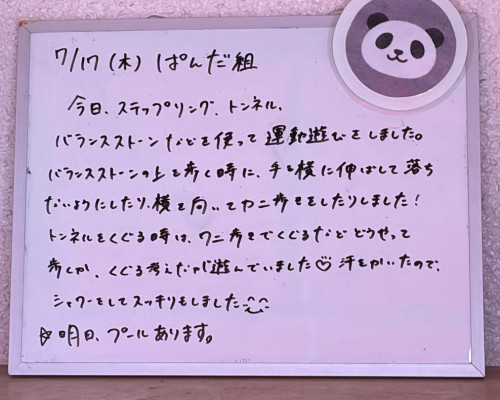 7/17(木) ぱんだ組
今日、ステップリング、トンネル、
バランスストーンなどを使って運動遊びをしました。
バランスストーンの上を歩く時に、手を横に伸ばして落ち
ないようにしたり、横を向いてカニ歩きをしたりしました!
トンネルをくぐる時は、ワニ歩きでくぐるなどどうやって
歩くか、くぐる考えながら遊んでいました♡ 汗をかいたので、
シャワーをしてスッキリもしました
☆明日、プールあります。